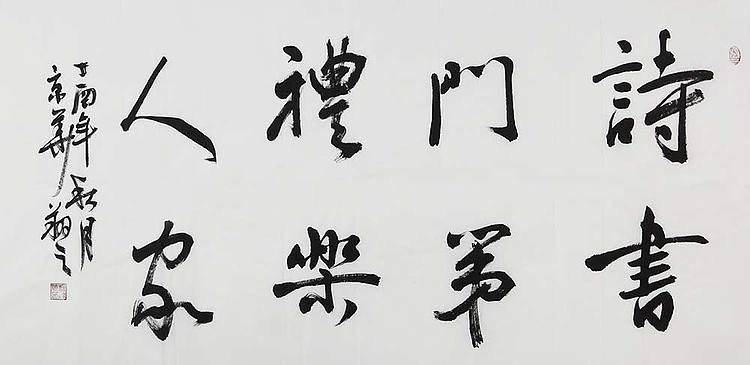 詩書
門第
禮樂
人家
丁酉年秋月
京華翔之